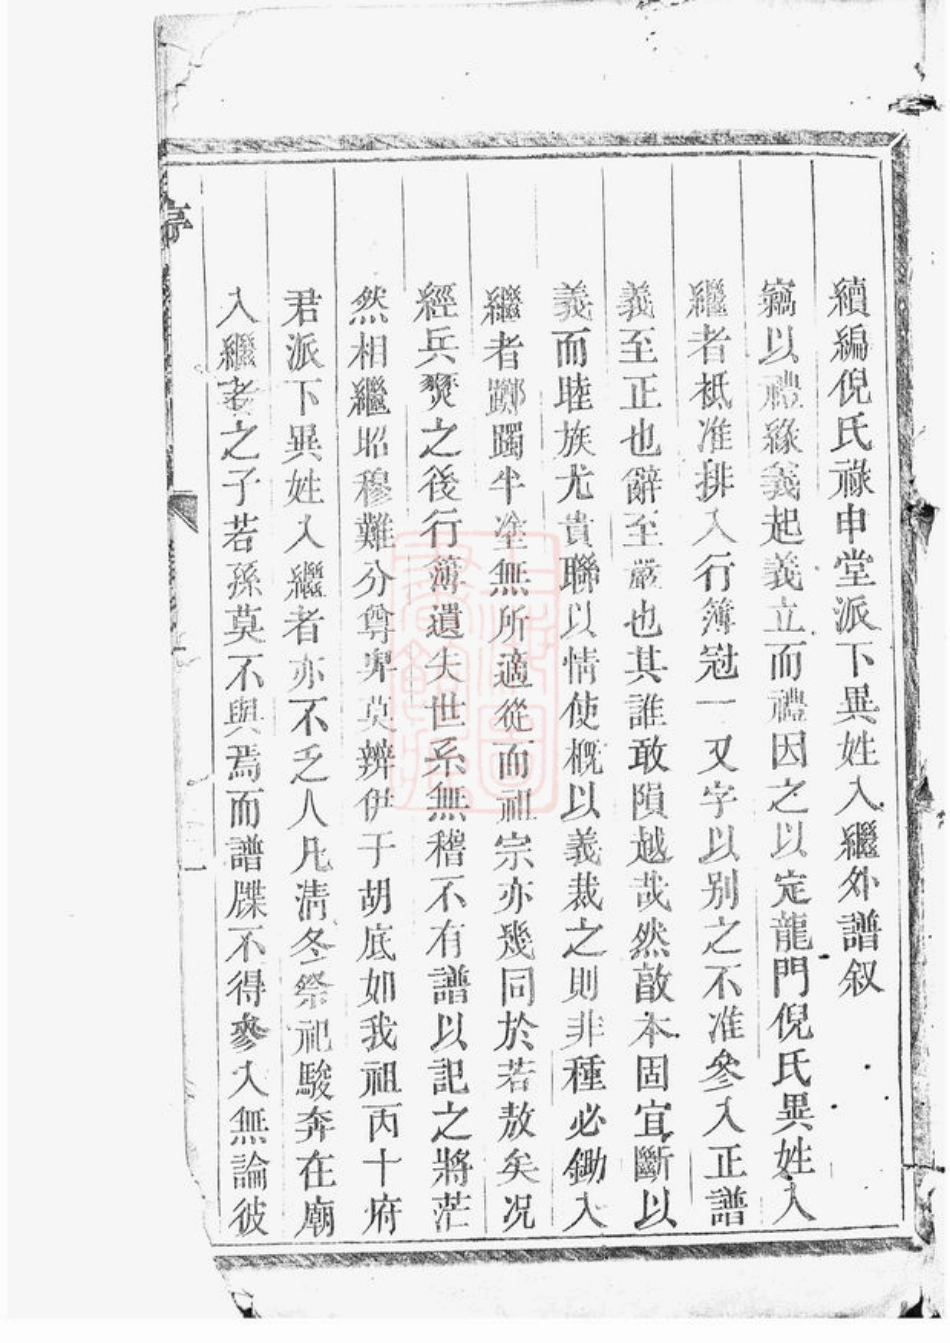 續編倪氏祿申堂派下異姓入繼外譜叙
竊以禮緣義起義立而禮因之以定龍門倪氏異姓入
繼者祗准排入行簿冠一又字以别之不准參入正譜
義至正也辭至嚴也其誰敢隕越哉然敵本固宜斷以
義而睦族尤貴聯以情使槪以義裁之則非種必鋤入
繼者躑躅半塗無所適從而祖宗亦幾同於若敖矣况
經兵燹之後行簿遺失世系無稽不有譜以記之將茫
然相繼昭穆難分尊卑莫辨伊于胡底如我祖丙十府
君派下異姓入繼者亦不乏人凡清冬祭祀駿奔在廟
入繼者之子若孫莫不與焉而譜牒不得參入無論彼
亭
一